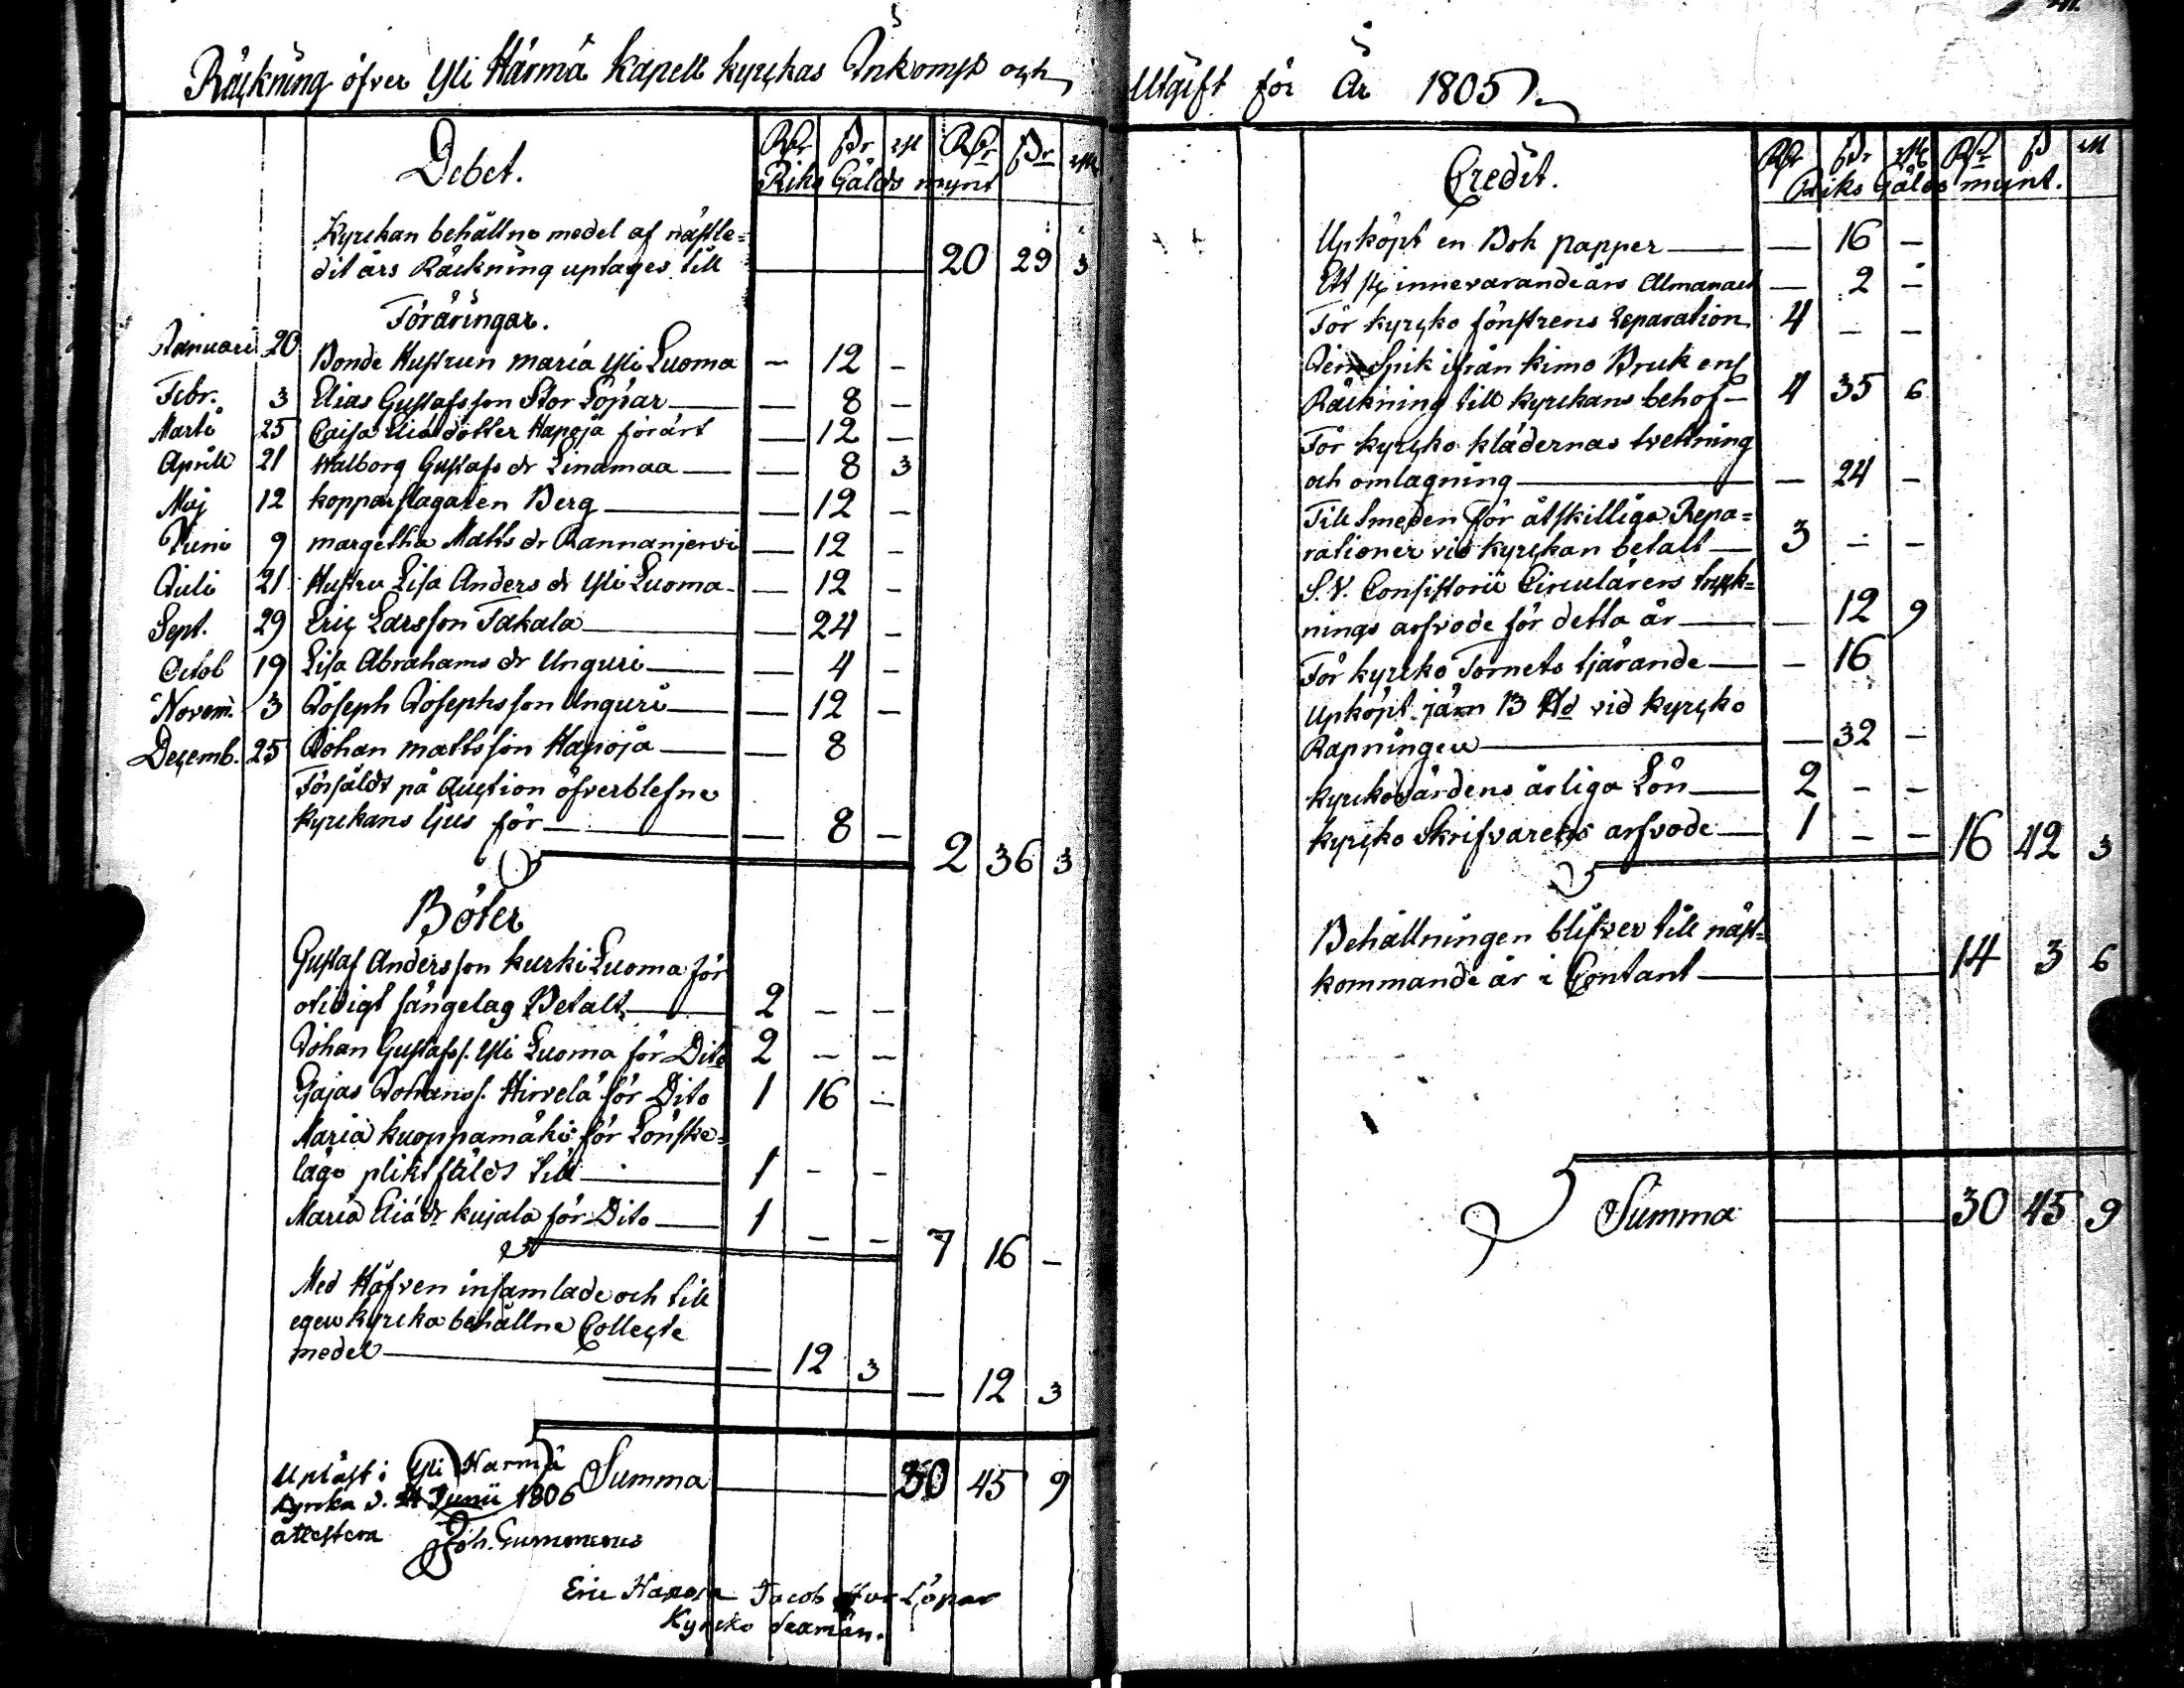 Räckning öfver Yli Härmä Kapell kyrckas Inkomst och
Utgift för År 1805.
Debet.
Rdr ßr rst Rdr ßr rst
Riks Gälds mynt
Kyrckan behållne medel af nästle=
dit års Räckning uptages till — 20 29 3
Föräringar.
Januari 20 Bonde Hustrun maria Yli Luoma — 12 —
Febr. 3 Elias Gustafsson Stor Löpar — 8 —
Marti 25 Caisa Elias dotter Hapoja förärt — 12 —
Aprill 21 Walborg Gustafs dr Linamaa — 8 3
Maj 12 kopparslagaren Berg — 12 —
Juni 9 margetha Matts dr Rannanjervi — 12 —
Juli 21 Hustru Lisa Anders dr Yli Luoma — 12 —
Sept. 29 Eric Larsson Takala — 24 —
Octob 19 Lisa Abrahams dr Unguri — 4 —
Novem. 3 Joseph Josephsson Unguri — 12 —
Decemb. 25 Johan mattsson Hapoja — 8
Försåldt på Auction öfverblefne
kyrckans ljus för — 8 —
2 36 3
Böter
Gustaf Andersson kurki Luoma för
otidigt sängelag Betalt 2 — —
Johan Gustafss. Yli Luoma för Dito 2 — —
Gajas Johanss. Hirvelä för Dito 1 16 —
Maria kuoppamäki för Lönske=
läge pliktfäldt till 1 — —
Maria Eliä dr kujala för Dito 1 — —
7 16 —
Med Håfven insamlade och till
egen kyrcka behållne Collecte
medel — 12 3
— 12 3
Summa 30 45 9
Upläst i Yli Harmä
kyrcka d. 24 Junii 1806
attestera Joh. Gummerus
Eric Hapoja Jacob Stor Löpar
Kyrcko sexmän.
Credit.
Rdr ßr rst Rdr ß rst
Riks Gälds mynt.
Upköpt en Bok papper — 16 —
Ett st innevarande års Almanach — 2 —
För kyrcko fönstrens Reparation 4 — —
Jern Spik ifrån kimo Bruk enl
Räckning till kyrckans behof 4 35 6
För kyrcko klädernas tvettning
och omlagning — 24 —
Till Smeden för åtskilliga Repa=
rationer vid kyrckan betalt 3 — —
S. V. Consistorii Circulärens tryck=
nings arfvode för detta år — 12 9
För kyrcko Tornets tjärande — 16
Upköpt järn 13 ℔d vid kyrcko
Rapningen — 32 —
kyrckovärdens årliga Lön 2 — —
kyrcko Skrifvarens arfvode 1 — —
16 42 3
Behållningen blifver till näst=
kommande år i Contant 14 3 6
Summa 30 45 9